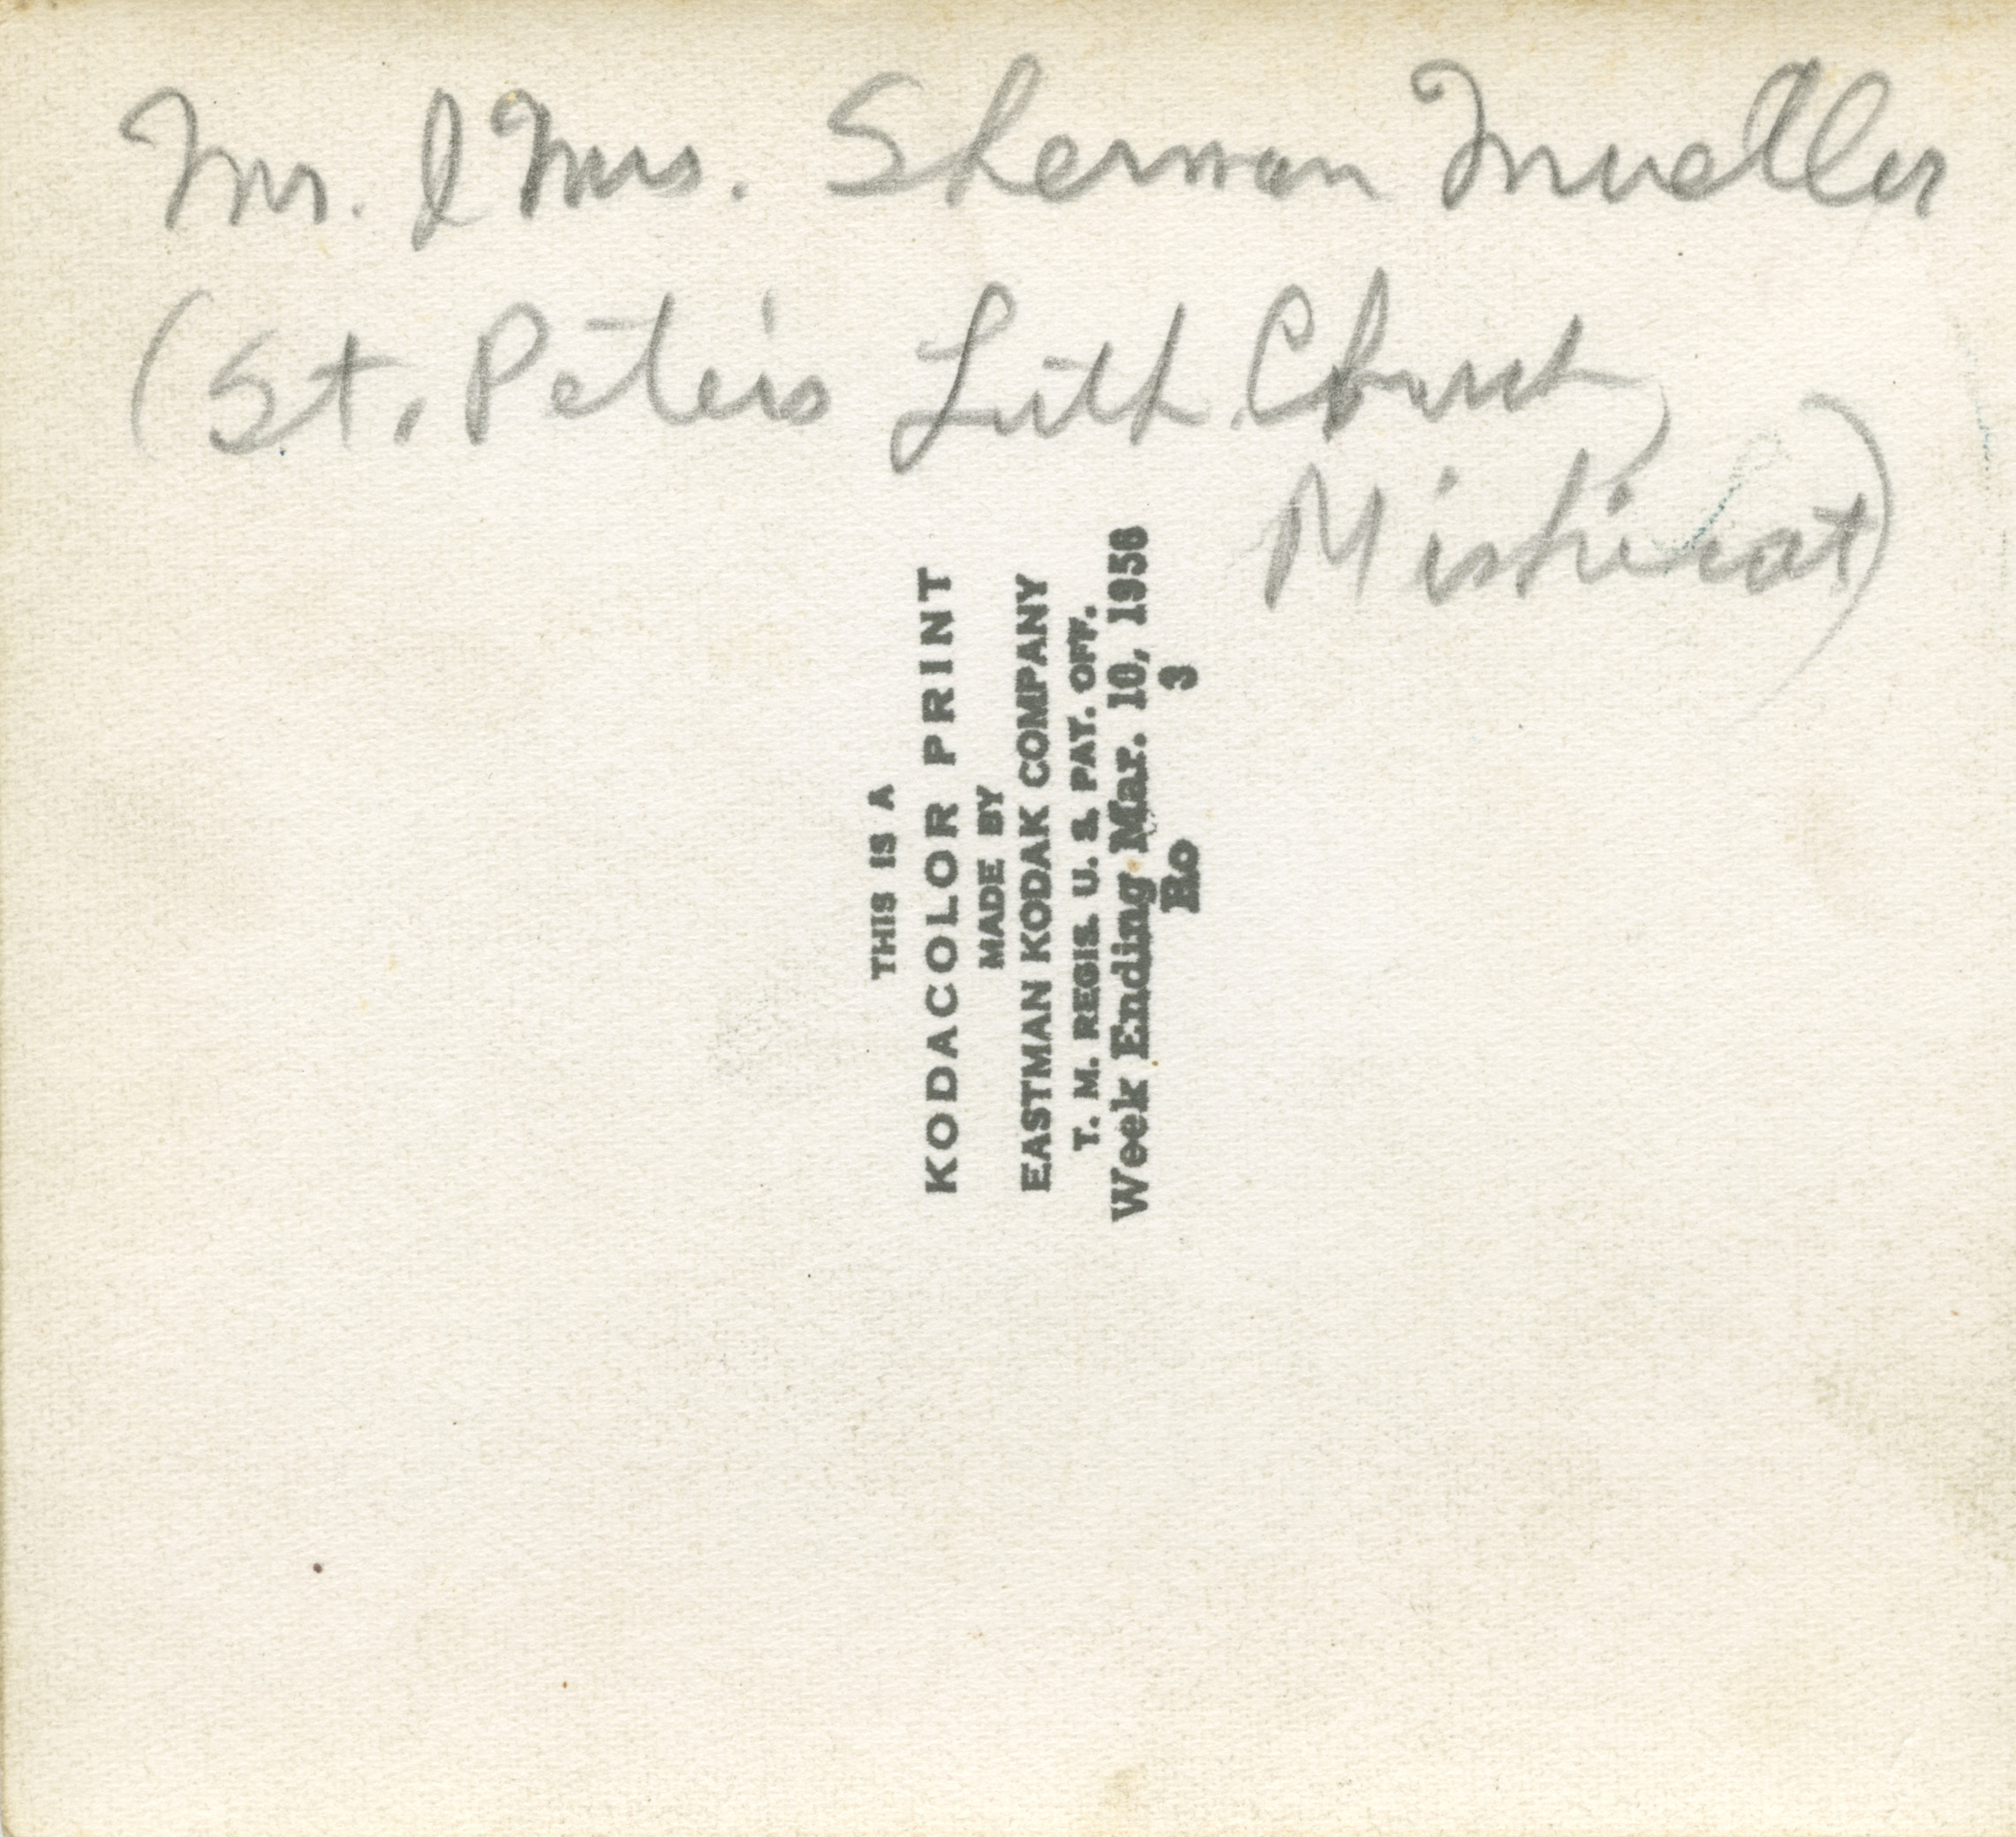 Mr. & Mrs. Sherman Mueller
(St. Peter's Luth. Church,
Mishicot)
THIS IS A
KODACOLOR PRINT
MADE BY
EASTMAN KODAK COMPANY
T. M. REGIS. U. S. PAT. OFF.
Week Ending Mar. 10, 1956
Ro 3